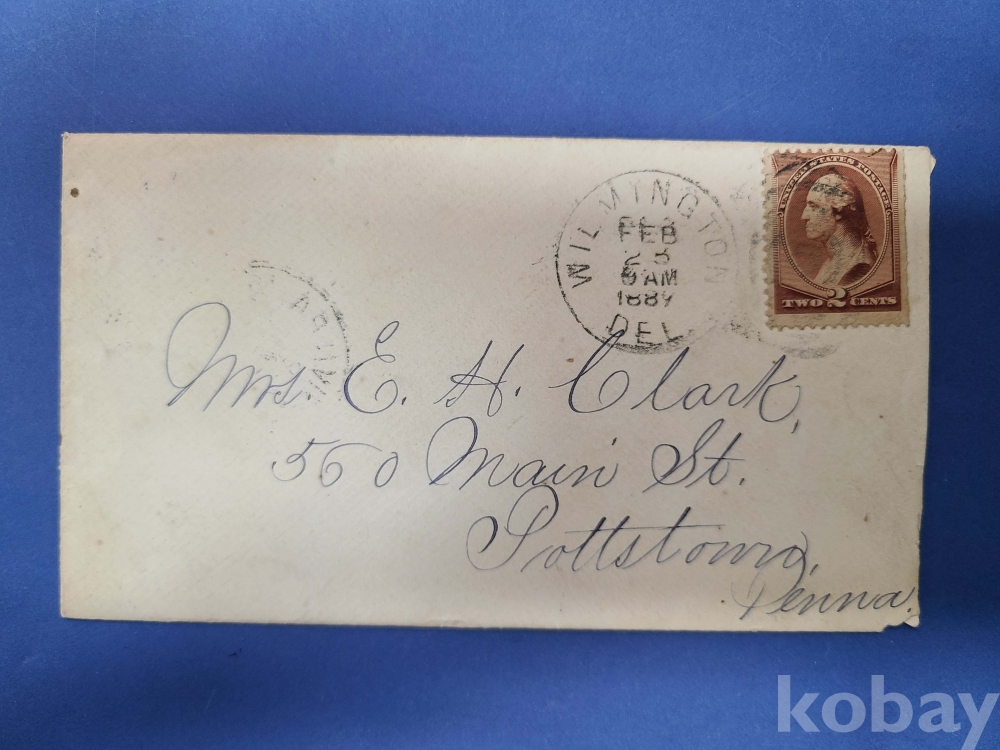 WILMINGTON
FEB
23
9 AM
1887
DEL.
UNITED STATES POSTAGE
TWO 2 CENTS
Mrs E. H. Clark,
560 Main St.
Pottstown,
Penna.
kobay